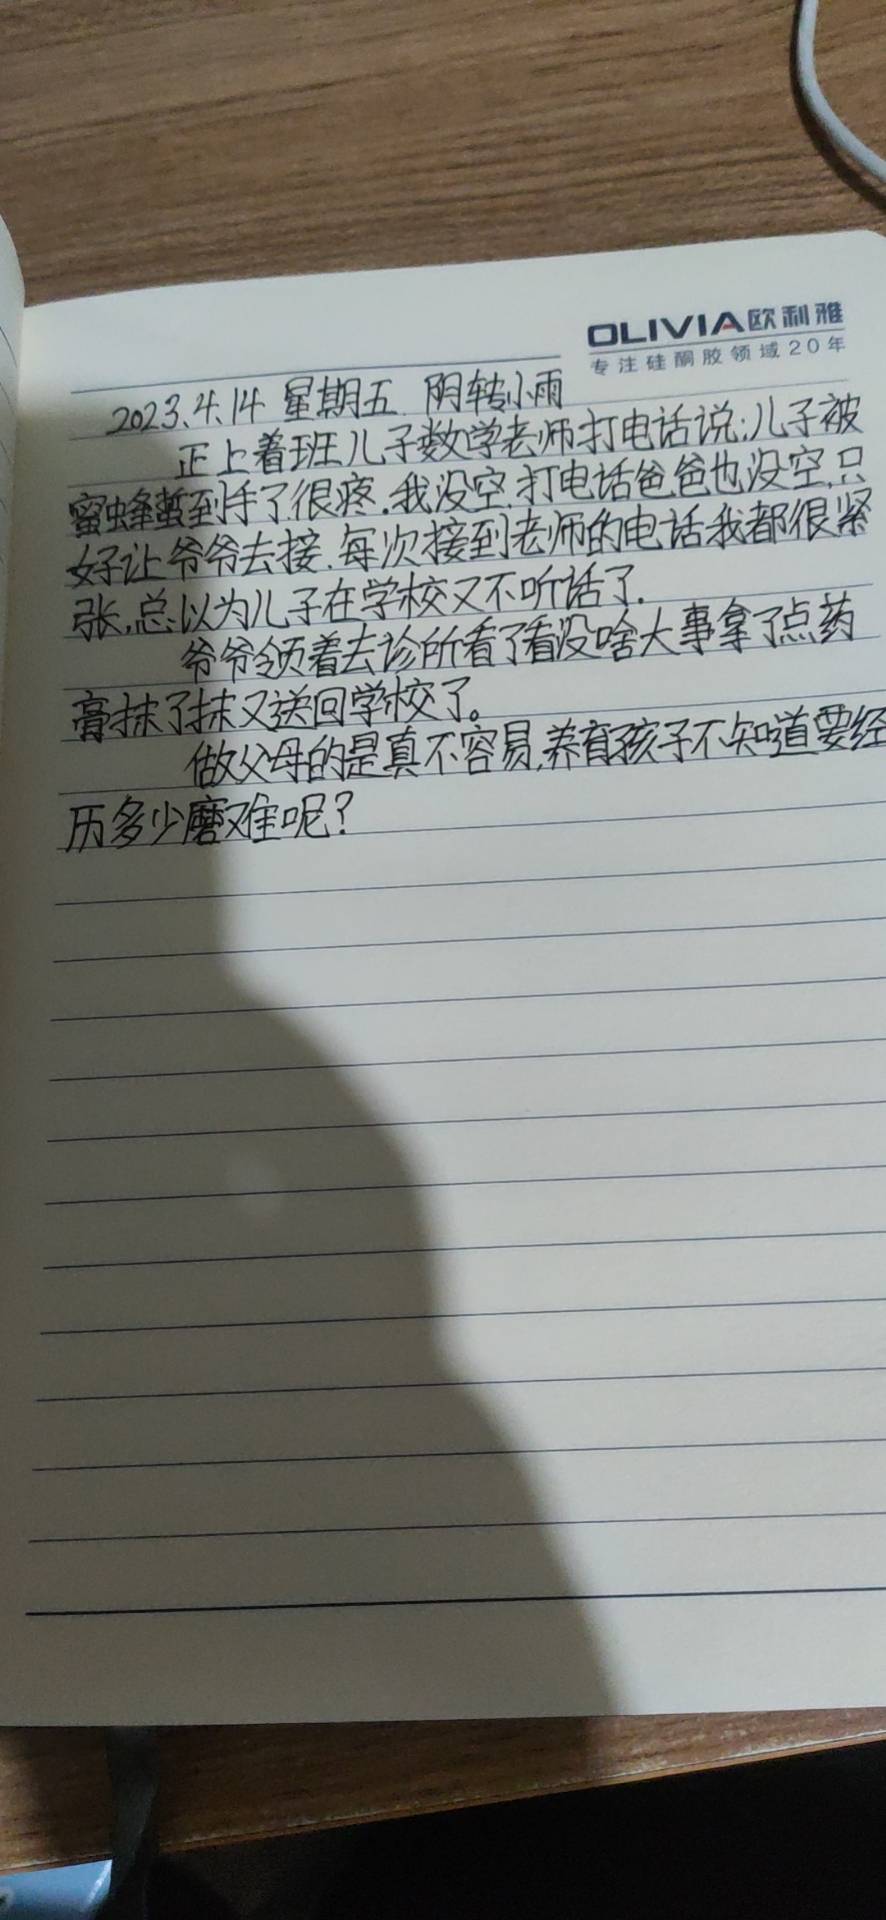 OLIVIA欧利雅
专注硅酮胶领域20年
2023.4.14 星期五 阴转小雨
正上着班儿子数学老师打电话说:儿子被
蜜蜂蜇到手了很疼.我没空.打电话爸爸也没空.只
好让爷爷去接.每次接到老师的电话我都很紧
张,总以为儿子在学校又不听话了.
爷爷领着去诊所看了看没啥大事拿了点药
膏抹了抹又送回学校了。
做父母的是真不容易,养育孩子不知道要经
历多少磨难呢?